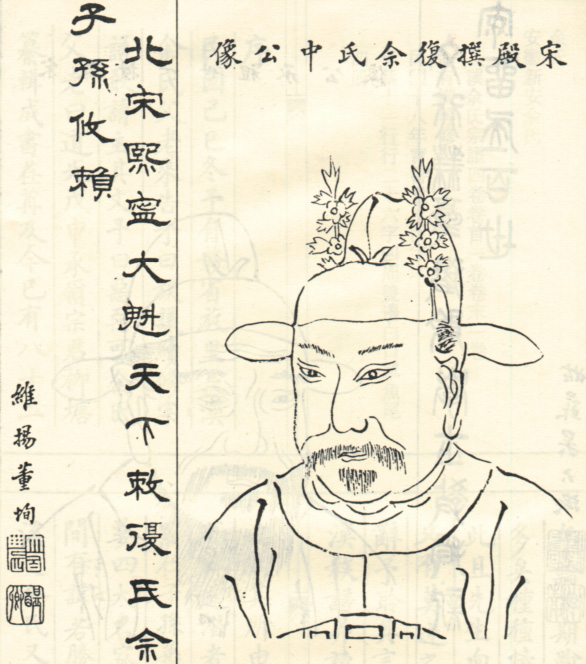 宋殿撰復佘氏中公像
北宋熙寧大魁天下敕復氏佘
子孫攸賴
維揚董恂